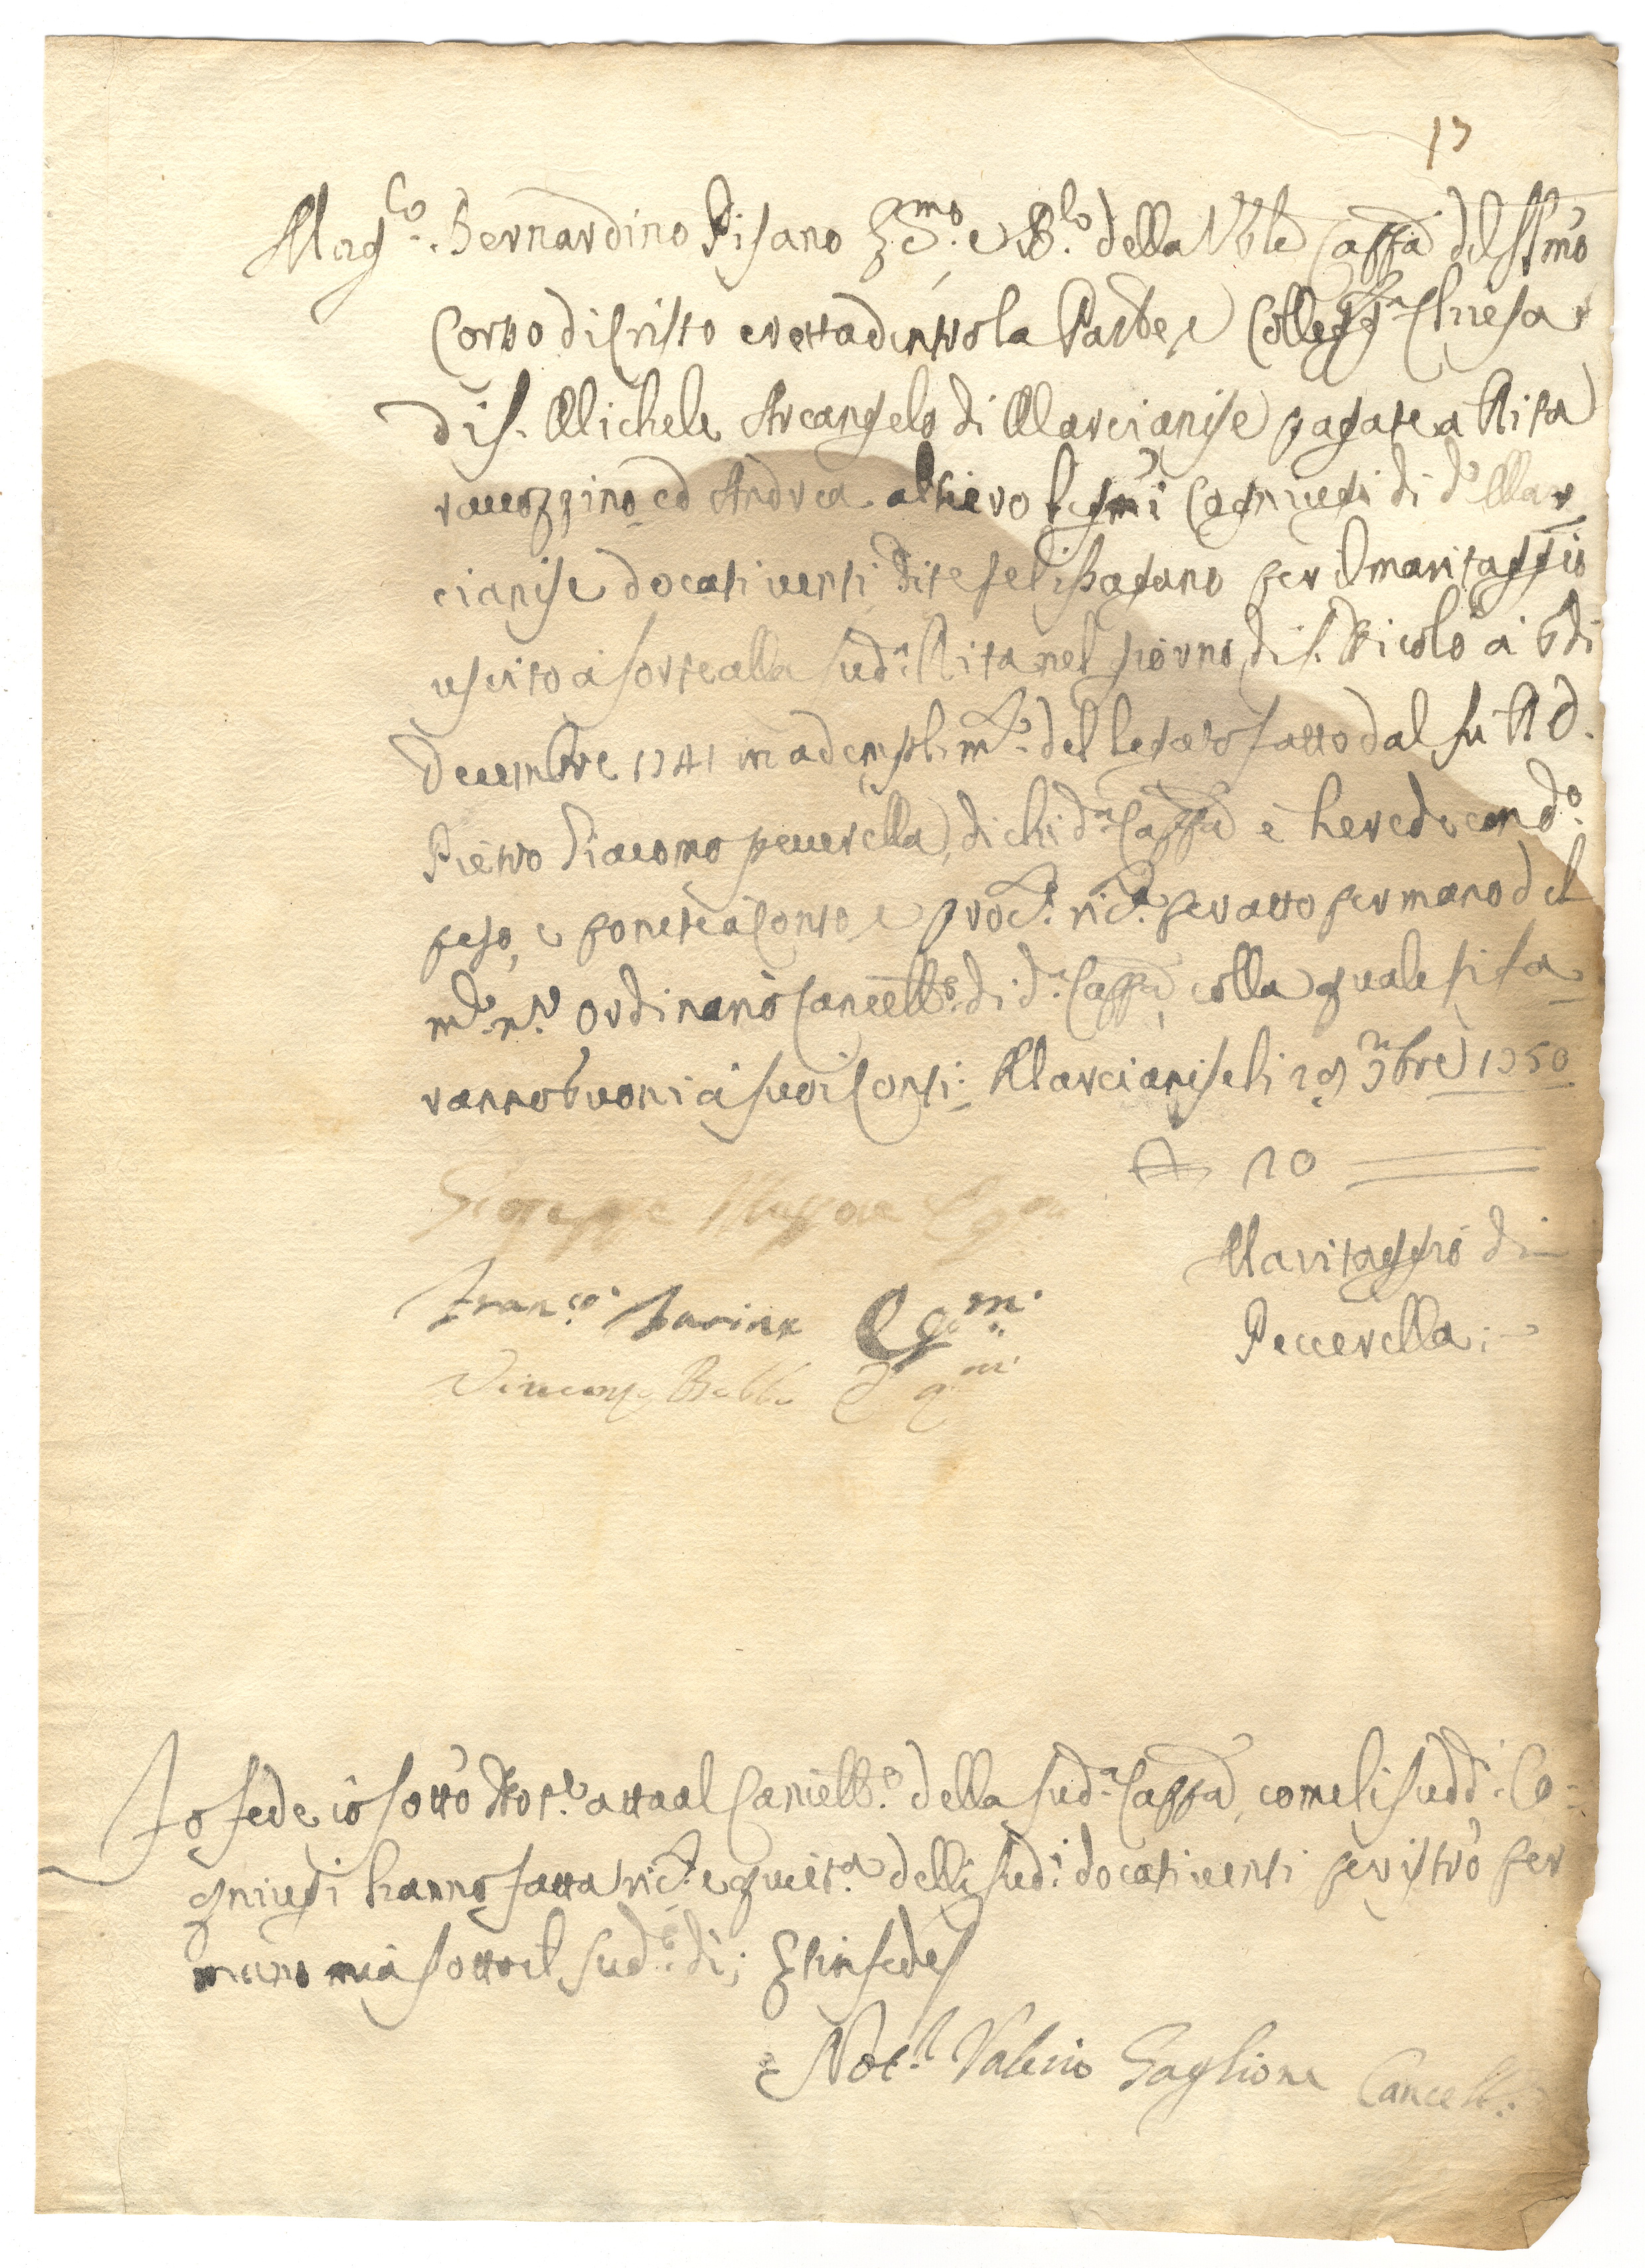 17
Mag.co Bernardino Pisano della Ven.le Cappa del SSmo
Corpo di Cristo eretta dentro la Par.le e Collegg.ta Chiesa
di S. Michele Arcangelo di Marcianise pagate a Rita
ed Andrea coniugi di d.o Mar
cianise docati venti, e se li pagano per il maritaggio
uscito à sorte alla sud.a Rita nel giorno di S. Nicolò a 6 di
Decembre 1741 in ademplim.to del legato fatto dal fù R. D.
Pietro Giacomo peccerella, di chi d.a Cappa è herede con d.o
peso, e ponete à conto, e per atto per mano del
m.o n.ro ordinario Cancell.o di d.a Cappa, colla quale si fa
ranno buoni à suoi Conti. Marcianise li 29 9bre 1750
20
Maritaggio di
Peccerella
Giuseppe
Fran.co
Vincenzo
Fo fede io sotto Not.r attual Cancell.o della sud.a Cappa, come li sudd.i Co=
gniugi hanno fatta ric.ta e quiet.a delli sud.i docati venti per istro per
mano mia sotto il sud.o dì; et in fede
Not.r Valerio Gaglione Cancell.o